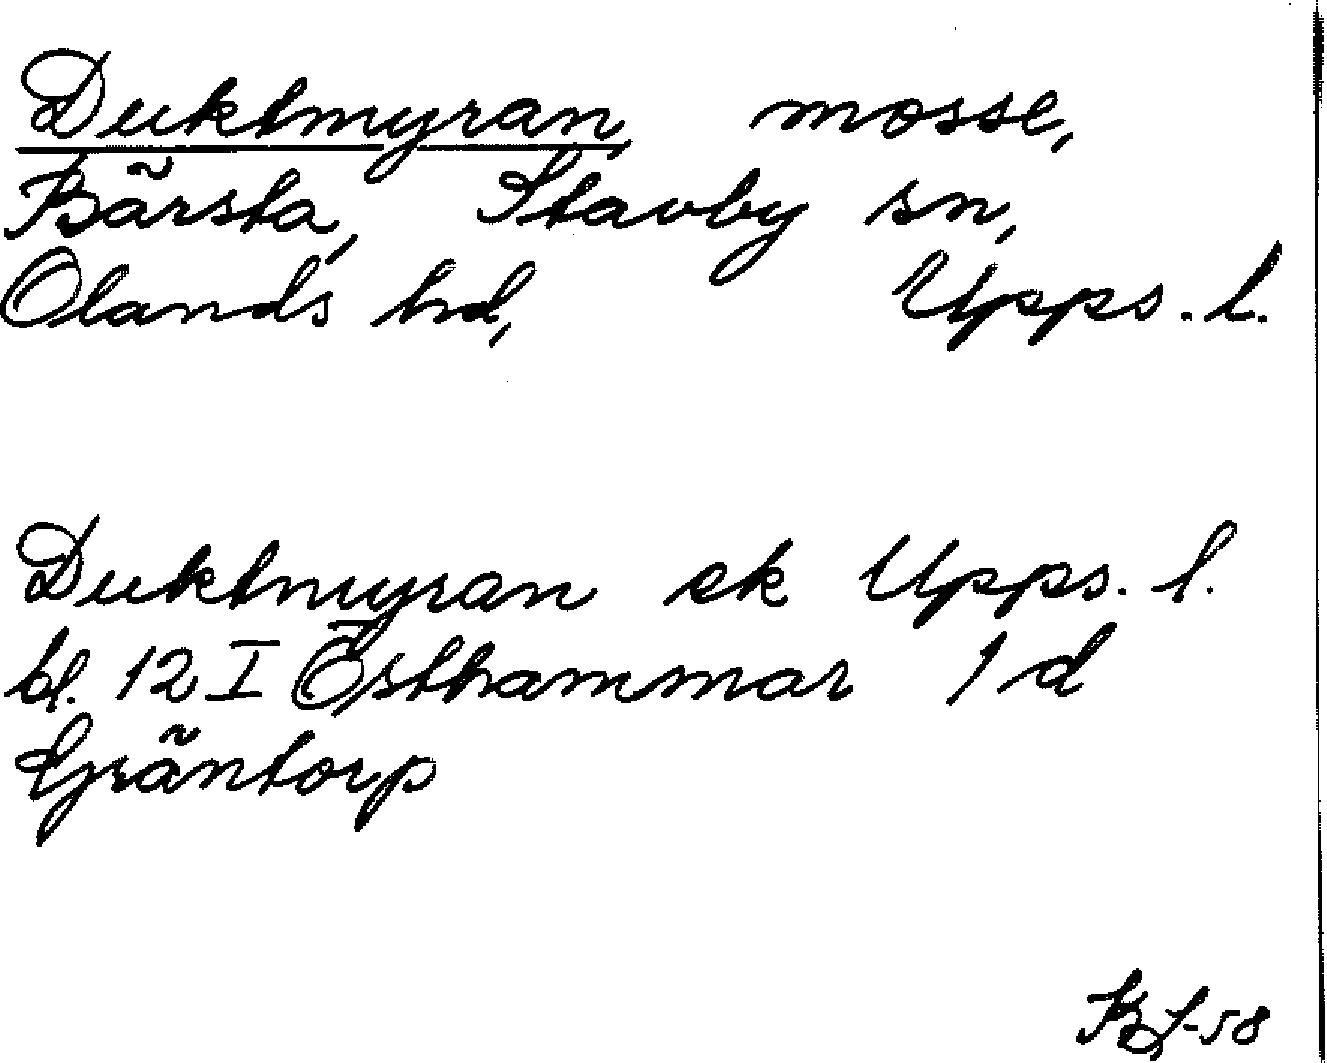 Duktmyran, mosse,
Bärsta, Stavby sn,
Olands hd, Upps. l.
Duktmyran ek Upps. l.
bl. 12 I Östhammar 1 d
Gräntorp
BJ-58